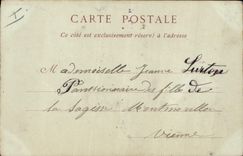 CARTE POSTALE
Ce côté est exclusivement réservé à l'adresse
Mademoiselle Jeanne
Pensionnaire de fille de
la Sagesse Montmorillon
Vienne